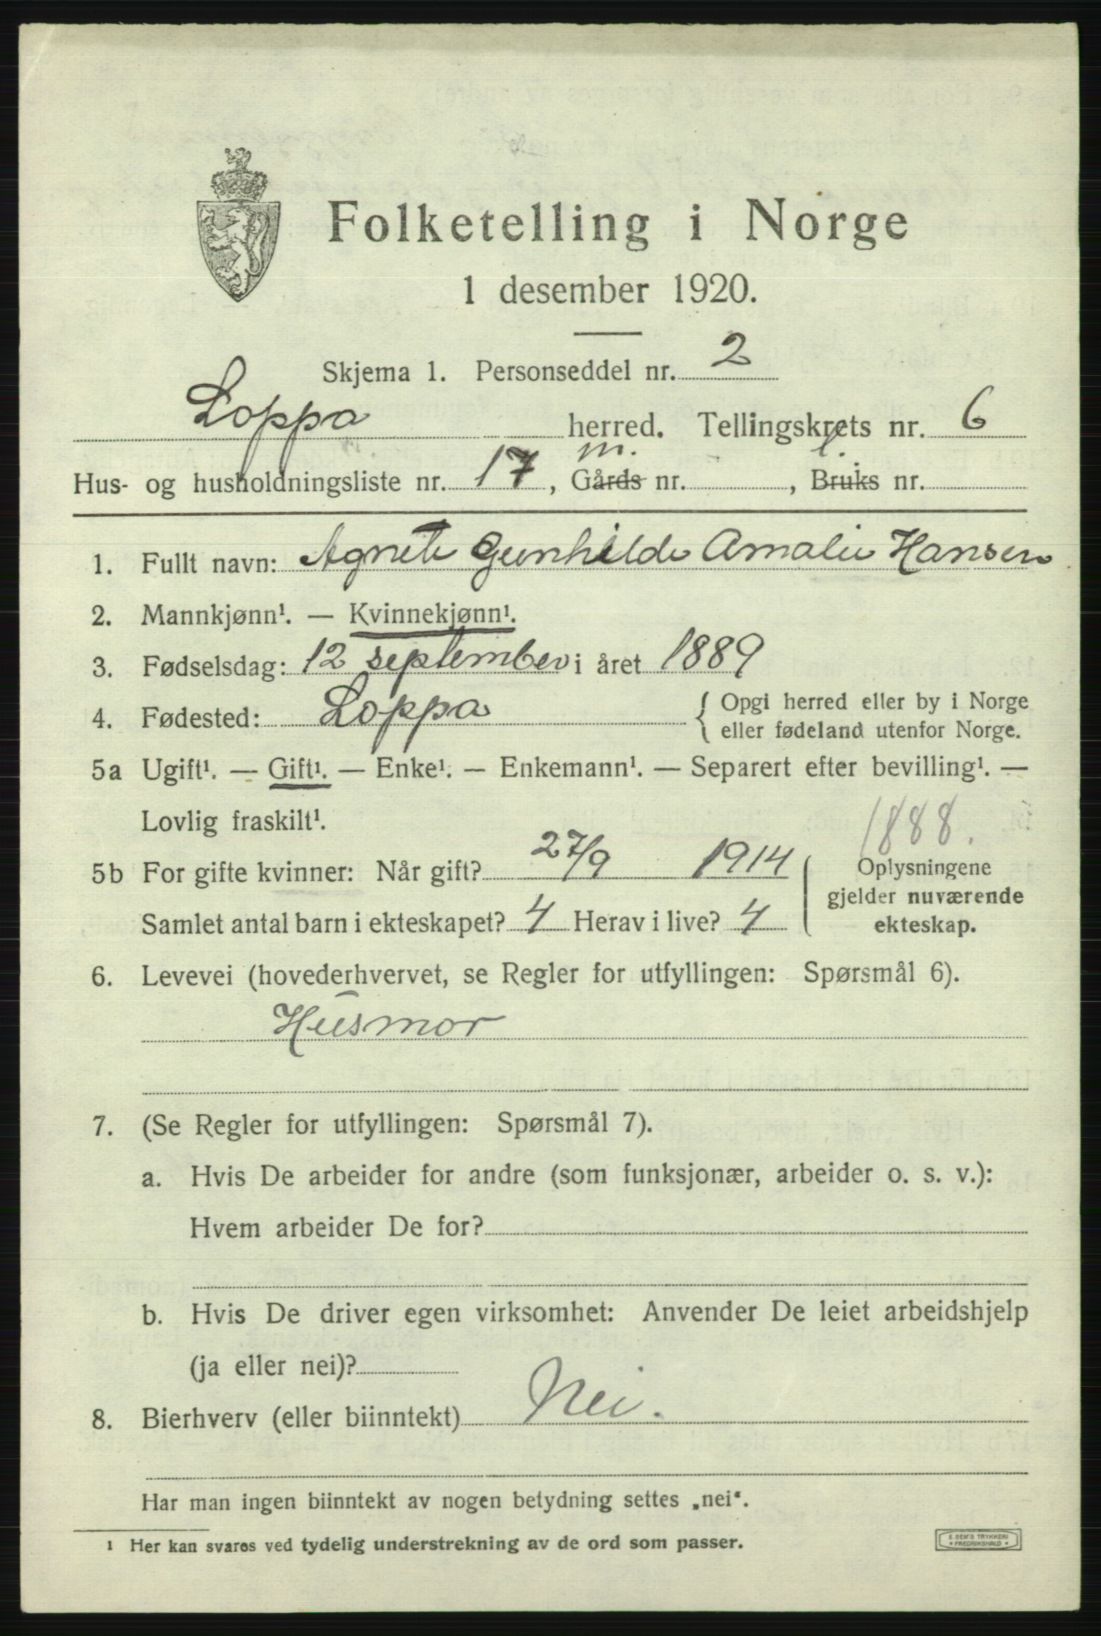 Folketelling i Norge
1 desember 1920.
Skjema 1. Personseddel nr. 2
Loppa herred. Tellingskrets nr. 6
m. l.
Hus- og husholdningsliste nr. 17, Gårds nr. , Bruks nr.
1. Fullt navn: Agnete Gunhilde Amalie Hansen
2. Mannkjønn¹. — Kvinnekjønn¹.
3. Fødselsdag: 12 september i året 1889
4. Fødested: Loppa { Opgi herred eller by i Norge
eller fødeland utenfor Norge.
5a Ugift¹. — Gift¹. — Enke¹. — Enkemann¹. — Separert efter bevilling¹. —
Lovlig fraskilt¹.
1888.
5b For gifte kvinner: Når gift? 27/9 1914
Samlet antal barn i ekteskapet? 4 Herav i live? 4
Oplysningene
gjelder nuværende
ekteskap.
6. Levevei (hovederhvervet, se Regler for utfyllingen: Spørsmål 6).
Husmor
7. (Se Regler for utfyllingen: Spørsmål 7).
a. Hvis De arbeider for andre (som funksjonær, arbeider o. s. v.):
Hvem arbeider De for?
b. Hvis De driver egen virksomhet: Anvender De leiet arbeidshjelp
(ja eller nei)?
8. Bierhverv (eller biinntekt) Nei.
Har man ingen biinntekt av nogen betydning settes „nei“.
1 Her kan svares ved tydelig understrekning av de ord som passer.
E. SEM'S TRYKKERI
• FREDRIKSHALD •